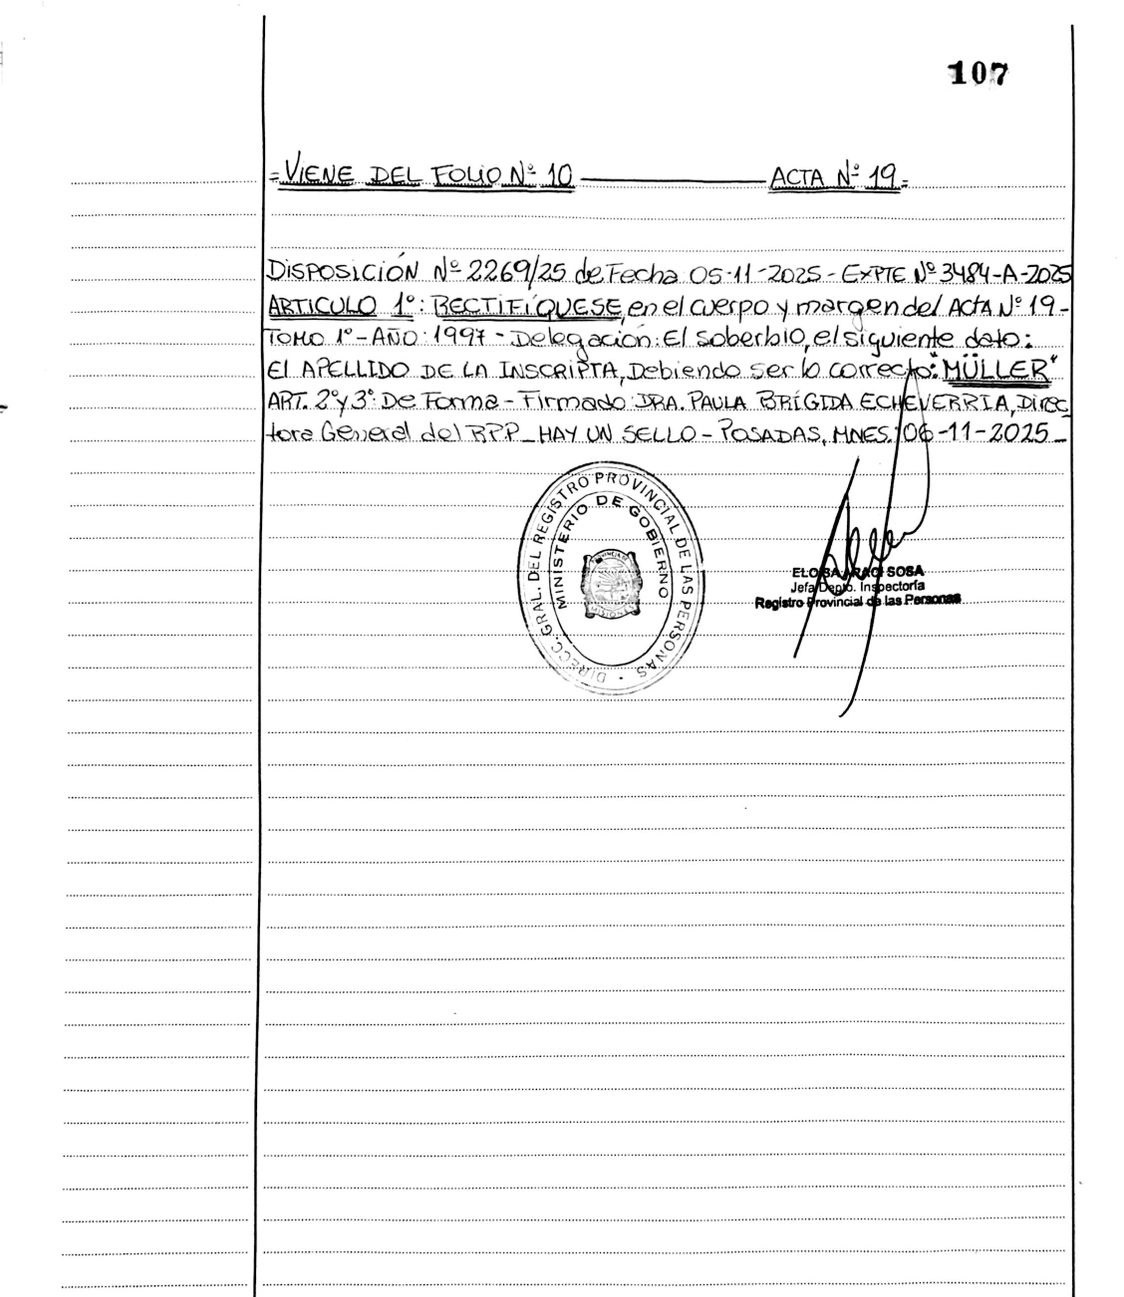 107
=VIENE DEL FOLIO Nº 10 ——— ACTA Nº 19=
DISPOSICIÓN Nº 2269/25 de Fecha 05-11-2025- EXPTE Nº 3484-A-2025
ARTICULO 1º: RECTIFÍQUESE, en el cuerpo y margen del ACTA Nº 19-
TOMO 1º-AÑO: 1997 - Delegación: El soberbio, el siguiente dato:
El APELLIDO DE LA INSCRIPTA, Debiendo ser lo correcto: "MÜLLER"
ART. 2º y 3º: De Forma - Firmado DRA. PAULA BRÍGIDA ECHEVERRIA, Direc
tora General del RPP_ HAY UN SELLO - POSADAS, MNES. 06-11-2025_
DIRECC. GRAL. DEL REGISTRO PROVINCIAL DE LAS PERSONAS
MINISTERIO DE GOBIERNO
PROVINCIA DE
MISIONES
ELOISA ARACI SOSA
Jefa Depto. Inspectoría
Registro Provincial de las Personas